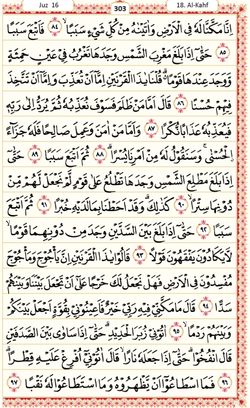 Juz 16 303 18. Al-Kahf
إِنَّا مَكَّنَّا لَهُ فِي الْأَرْضِ وَآتَيْنَاهُ مِنْ كُلِّ شَيْءٍ سَبَبًا ﴿٨٤﴾ فَأَتْبَعَ سَبَبًا
﴿٨٥﴾ حَتَّىٰ إِذَا بَلَغَ مَغْرِبَ الشَّمْسِ وَجَدَهَا تَغْرُبُ فِي عَيْنٍ حَمِئَةٍ
وَوَجَدَ عِنْدَهَا قَوْمًا قُلْنَا يَا ذَا الْقَرْنَيْنِ إِمَّا أَنْ تُعَذِّبَ وَإِمَّا أَنْ تَتَّخِذَ
فِيهِمْ حُسْنًا ﴿٨٦﴾ قَالَ أَمَّا مَنْ ظَلَمَ فَسَوْفَ نُعَذِّبُهُ ثُمَّ يُرَدُّ إِلَىٰ رَبِّهِ
فَيُعَذِّبُهُ عَذَابًا نُكْرًا ﴿٨٧﴾ وَأَمَّا مَنْ آمَنَ وَعَمِلَ صَالِحًا فَلَهُ جَزَاءً
الْحُسْنَىٰ وَسَنَقُولُ لَهُ مِنْ أَمْرِنَا يُسْرًا ﴿٨٨﴾ ثُمَّ أَتْبَعَ سَبَبًا ﴿٨٩﴾ حَتَّىٰ
إِذَا بَلَغَ مَطْلِعَ الشَّمْسِ وَجَدَهَا تَطْلُعُ عَلَىٰ قَوْمٍ لَمْ نَجْعَلْ لَهُمْ مِنْ
دُونِهَا سِتْرًا ﴿٩٠﴾ كَذَٰلِكَ وَقَدْ أَحَطْنَا بِمَا لَدَيْهِ خُبْرًا ﴿٩١﴾ ثُمَّ أَتْبَعَ
سَبَبًا ﴿٩٢﴾ حَتَّىٰ إِذَا بَلَغَ بَيْنَ السَّدَّيْنِ وَجَدَ مِنْ دُونِهِمَا قَوْمًا
لَا يَكَادُونَ يَفْقَهُونَ قَوْلًا ﴿٩٣﴾ قَالُوا يَا ذَا الْقَرْنَيْنِ إِنَّ يَأْجُوجَ وَمَأْجُوجَ
مُفْسِدُونَ فِي الْأَرْضِ فَهَلْ نَجْعَلُ لَكَ خَرْجًا عَلَىٰ أَنْ تَجْعَلَ بَيْنَنَا وَبَيْنَهُمْ
سَدًّا ﴿٩٤﴾ قَالَ مَا مَكَّنِّي فِيهِ رَبِّي خَيْرٌ فَأَعِينُونِي بِقُوَّةٍ أَجْعَلْ بَيْنَكُمْ
وَبَيْنَهُمْ رَدْمًا ﴿٩٥﴾ آتُونِي زُبَرَ الْحَدِيدِ حَتَّىٰ إِذَا سَاوَىٰ بَيْنَ الصَّدَفَيْنِ
قَالَ انْفُخُوا حَتَّىٰ إِذَا جَعَلَهُ نَارًا قَالَ آتُونِي أُفْرِغْ عَلَيْهِ قِطْرًا
﴿٩٦﴾ فَمَا اسْطَاعُوا أَنْ يَظْهَرُوهُ وَمَا اسْتَطَاعُوا لَهُ نَقْبًا ﴿٩٧﴾